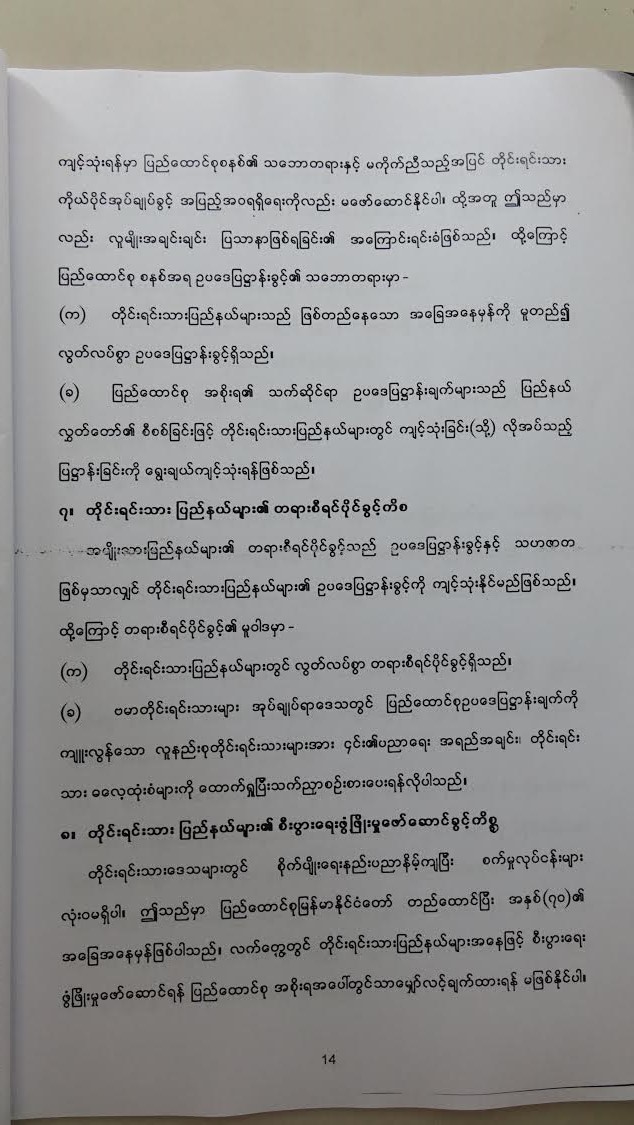 ကျင့်သုံးရန်မှာ ပြည်ထောင်စုစနစ်၏ သဘောတရားနှင့် မကိုက်ညီသည့်အပြင် တိုင်းရင်းသား
ကိုယ်ပိုင်အုပ်ချုပ်ခွင့် အပြည့်အဝရရှိရေးကိုလည်း မဖော်ဆောင်နိုင်ပါ။ ထို့အတူ ဤသည်မှာ
လည်း လူမျိုးအချင်းချင်း ပြဿနာဖြစ်ရခြင်း၏ အကြောင်းရင်းခံဖြစ်သည်။ ထို့ကြောင့်
ပြည်ထောင်စု စနစ်အရ ဥပဒေပြဋ္ဌာန်းခွင့်၏ သဘောတရားမှာ -
(က) တိုင်းရင်းသားပြည်နယ်များသည် ဖြစ်တည်နေသော အခြေအနေမှန်ကို မူတည်၍
လွတ်လပ်စွာ ဥပဒေပြဋ္ဌာန်းခွင့်ရှိသည်။
(ခ) ပြည်ထောင်စု အစိုးရ၏ သက်ဆိုင်ရာ ဥပဒေပြဋ္ဌာန်းချက်များသည် ပြည်နယ်
လွှတ်တော်၏ စီစစ်ခြင်းဖြင့် တိုင်းရင်းသားပြည်နယ်များတွင် ကျင့်သုံးခြင်း(သို့) လိုအပ်သည့်
ပြဋ္ဌာန်းခြင်းကို ရွေးချယ်ကျင့်သုံးရန်ဖြစ်သည်။
၇။ တိုင်းရင်းသား ပြည်နယ်များ၏ တရားစီရင်ပိုင်ခွင့်ကိစ္စ
အမျိုးသားပြည်နယ်များ၏ တရားစီရင်ပိုင်ခွင့်သည် ဥပဒေပြဋ္ဌာန်းခွင့်နှင့် သဟဇာတ
ဖြစ်မှသာလျှင် တိုင်းရင်းသားပြည်နယ်များ၏ ဥပဒေပြဋ္ဌာန်းခွင့်ကို ကျင့်သုံးနိုင်မည်ဖြစ်သည်။
ထို့ကြောင့် တရားစီရင်ပိုင်ခွင့်၏ မူဝါဒမှာ -
(က) တိုင်းရင်းသားပြည်နယ်များတွင် လွတ်လပ်စွာ တရားစီရင်ပိုင်ခွင့်ရှိသည်။
(ခ) ဗမာတိုင်းရင်းသားများ အုပ်ချုပ်ရာဒေသတွင် ပြည်ထောင်စုဥပဒေပြဋ္ဌာန်းချက်ကို
ကျူးလွန်သော လူနည်းစုတိုင်းရင်းသားများအား ၄င်း၏ပညာရေး အရည်အချင်း၊ တိုင်းရင်း
သား ဓလေ့ထုံးစံများကို ထောက်ရှုပြီးသက်ညှာစဉ်းစားပေးရန်လိုပါသည်။
၈။ တိုင်းရင်းသား ပြည်နယ်များ၏ စီးပွားရေးဖွံ့ဖြိုးမှုဖော်ဆောင်ခွင့်ကိစ္စ
တိုင်းရင်းသားဒေသများတွင် စိုက်ပျိုးရေးနည်းပညာနိမ့်ကျပြီး စက်မှုလုပ်ငန်းများ
လုံးဝမရှိပါ။ ဤသည်မှာ ပြည်ထောင်စုမြန်မာနိုင်ငံတော် တည်ထောင်ပြီး အနှစ်(၇၀)၏
အခြေအနေမှန်ဖြစ်ပါသည်။ လက်တွေ့တွင် တိုင်းရင်းသားပြည်နယ်များအနေဖြင့် စီးပွားရေး
ဖွံ့ဖြိုးမှုဖော်ဆောင်ရန် ပြည်ထောင်စု အစိုးရအပေါ်တွင်သာမျှော်လင့်ချက်ထားရန် မဖြစ်နိုင်ပါ။
14